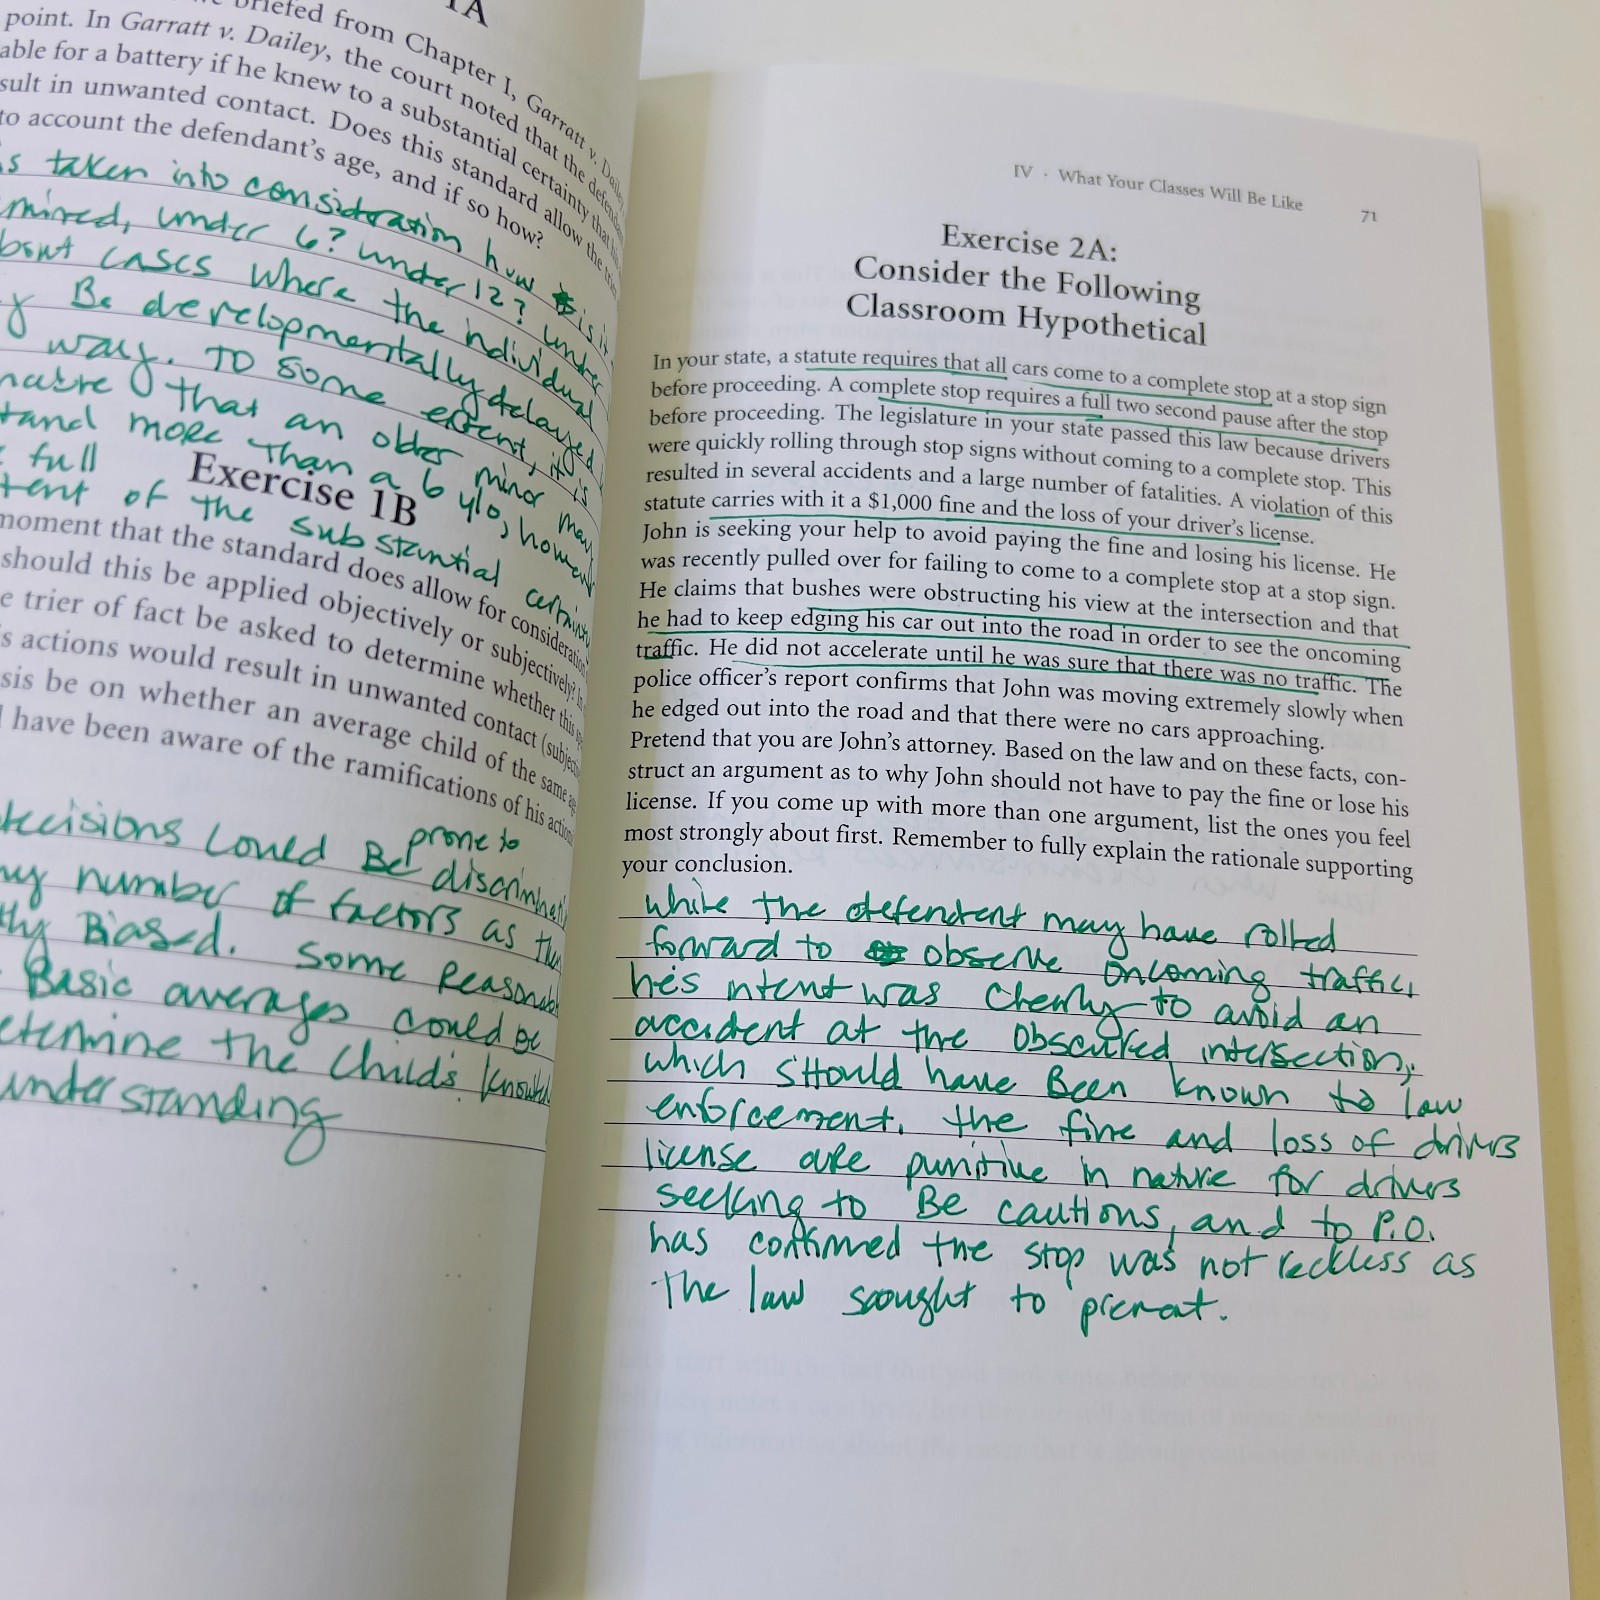 1A
briefed from Chapter I, Garratt v. Dailey,
point. In Garratt v. Dailey, the court noted that the defendant
able for a battery if he knew to a substantial certainty that his
sult in unwanted contact. Does this standard allow the trier
to account the defendant's age, and if so how?
s taken into consideration how is it
mined, under 6? under 12? under
bout cases where the individual
y Be developmentally delayed
way. To some extent, it is
nature that an older minor may
tand more than a 6 y/o, however
full
tent of the substantial certainty
Exercise 1B
moment that the standard does allow for consideration
should this be applied objectively or subjectively? In
e trier of fact be asked to determine whether this
s actions would result in unwanted contact (subjective
sis be on whether an average child of the same age
have been aware of the ramifications of his action
decisions could Be prone to discriminat
ny number of factors as the
thy Biased. Some Reasonab
Basic averages could be
etermine the childs knowl
understanding
IV · What Your Classes Will Be Like 71
Exercise 2A:
Consider the Following
Classroom Hypothetical
In your state, a statute requires that all cars come to a complete stop at a stop sign
before proceeding. A complete stop requires a full two second pause after the stop
before proceeding. The legislature in your state passed this law because drivers
were quickly rolling through stop signs without coming to a complete stop. This
resulted in several accidents and a large number of fatalities. A violation of this
statute carries with it a $1,000 fine and the loss of your driver's license.
John is seeking your help to avoid paying the fine and losing his license. He
was recently pulled over for failing to come to a complete stop at a stop sign.
He claims that bushes were obstructing his view at the intersection and that
he had to keep edging his car out into the road in order to see the oncoming
traffic. He did not accelerate until he was sure that there was no traffic. The
police officer's report confirms that John was moving extremely slowly when
he edged out into the road and that there were no cars approaching.
Pretend that you are John's attorney. Based on the law and on these facts, con-
struct an argument as to why John should not have to pay the fine or lose his
license. If you come up with more than one argument, list the ones you feel
most strongly about first. Remember to fully explain the rationale supporting
your conclusion.
while the defendent may have rolled
forward to observe oncoming traffic,
he's ntent was clearly to avoid an
accident at the obscured intersection,
which should have Been known to law
enforcement. the fine and loss of drivers
license are punitive in nature for drivers
seeking to Be cautions, and to P.O.
has confirmed the stop was not reckless as
The law soought to prevent.